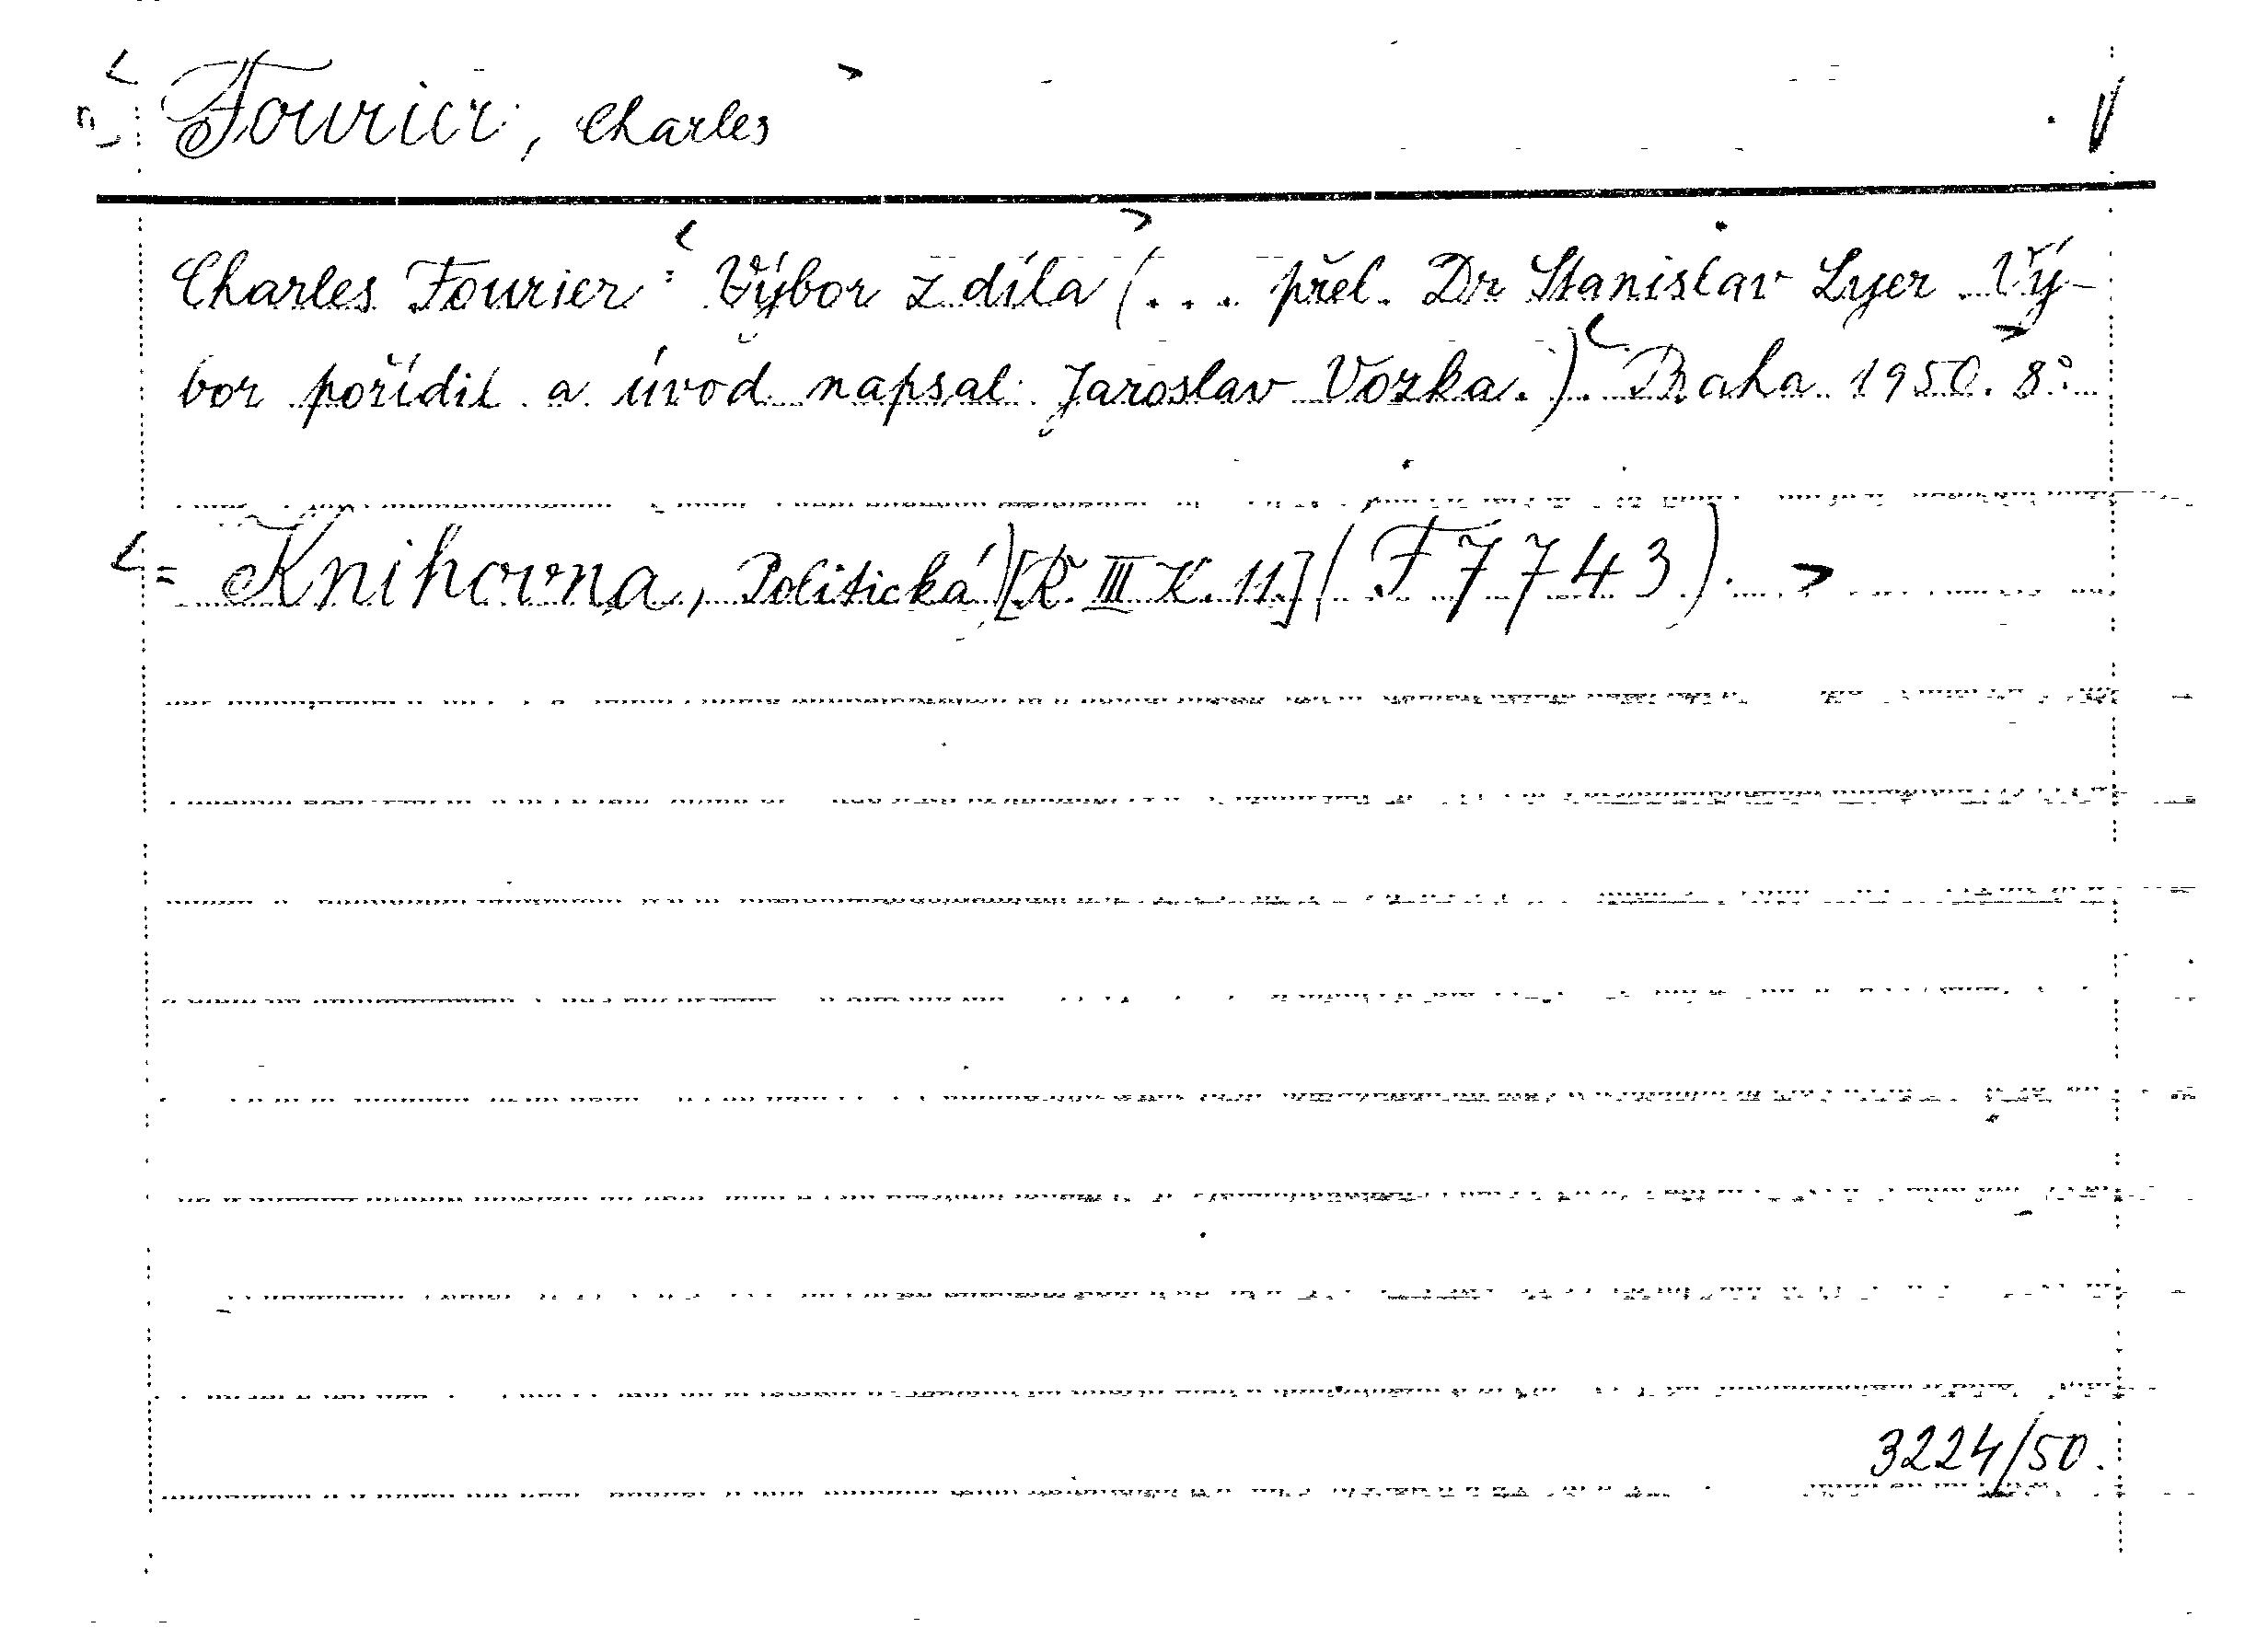 Fourier, Charles
Charles Fourier: Výbor z díla (... přel. Dr Stanislav Lyer. Vý-
bor pořídil a úvod napsal Jaroslav Vozka.). Praha 1950. 8°.
= Knihovna, Politická) [Ř. III K. 11.] (F 7743).
3224/50.